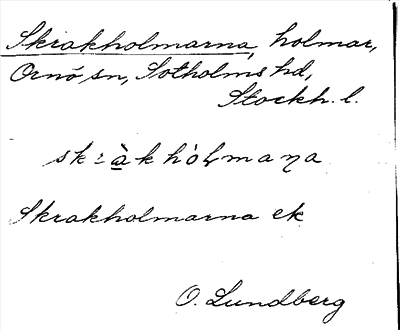 Skrakholmarna, holmar,
Ornö sn, Sotholms hd,
Stockh. l.
skrὰkhòlmaṇa
Skrakholmarna ek
O. Lundberg